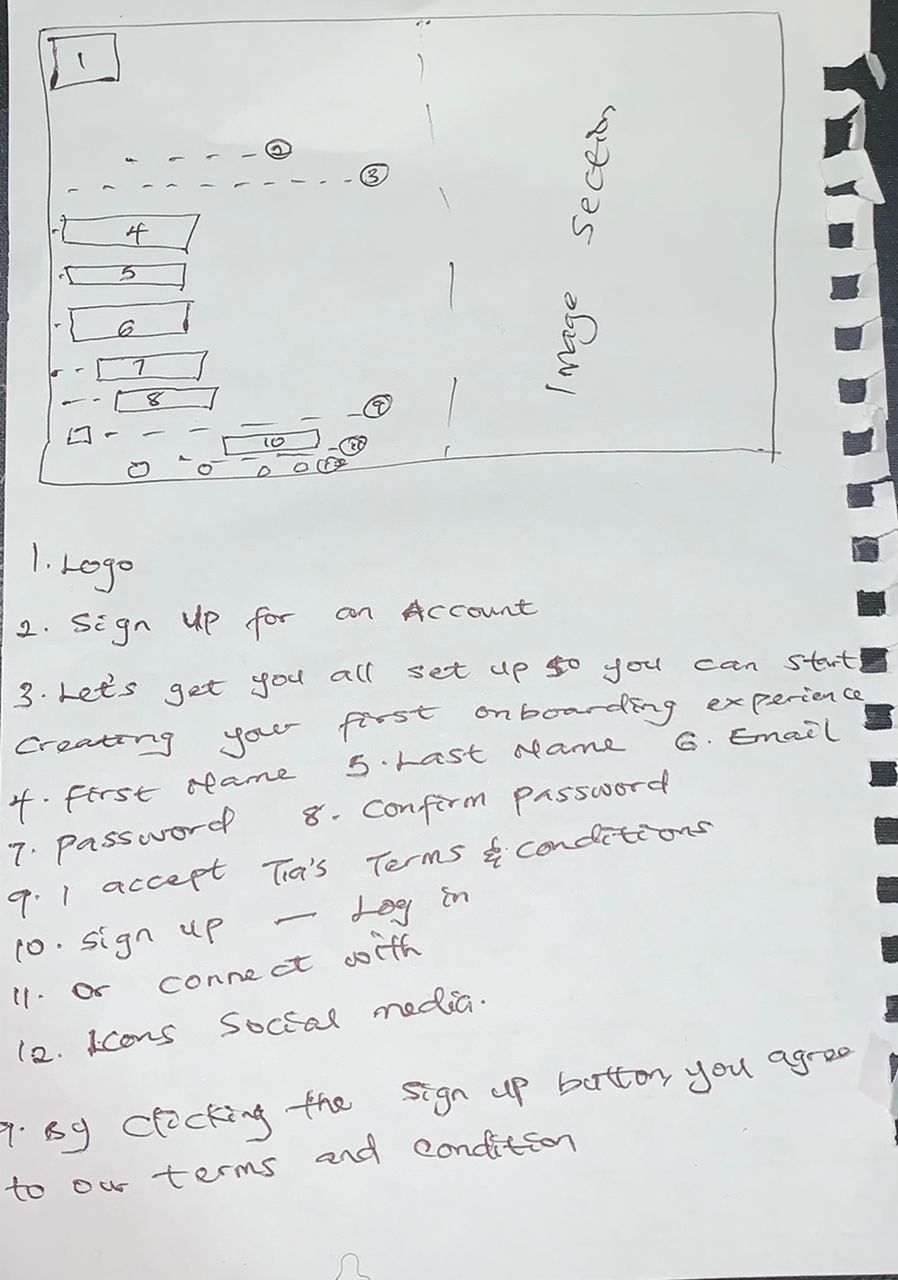 1
2
3
4
5
6
7
8
9
10
11
12
Image Section
1. Logo
2. Sign Up for an Account
3. Let's get you all set up so you can start
Creating your first onboarding experience
4. First Name 5. Last Name 6. Email
7. Password 8. Confirm Password
9. I accept Tia's Terms & Conditions
10. Sign up — Log in
11. Or connect with
12. Icons Social media.
9. By Clicking the Sign up button, you agree
to our terms and condition